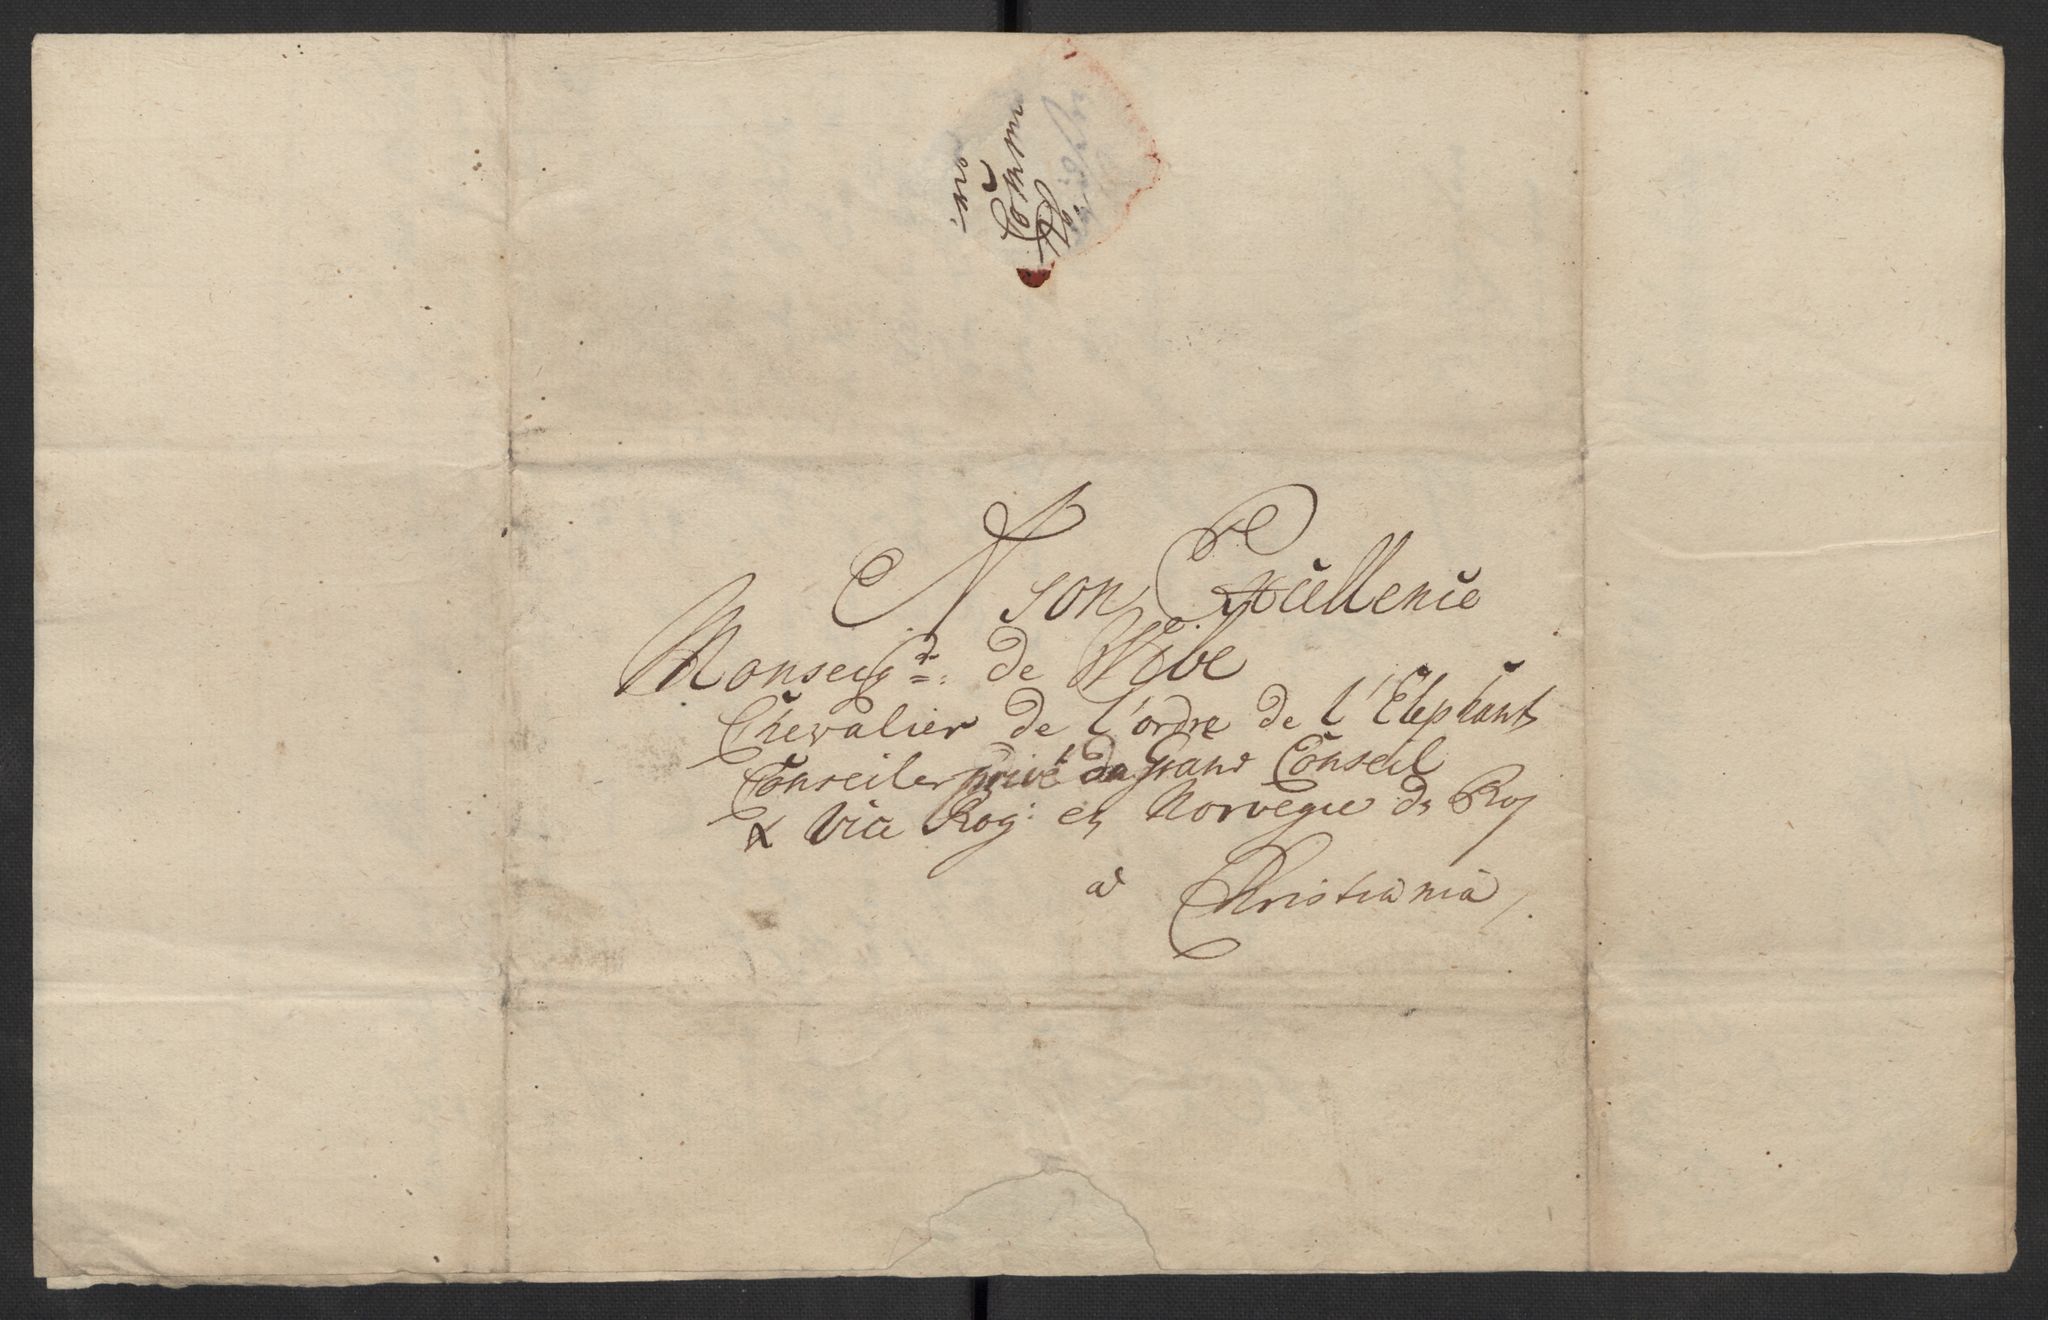 A son Excellence
Monseigr: de Wibe
Chevalier de l'ordre de l'Elephant
Conseiler privé du Grand Conseil
& Vice Roy: en Norvegue du Roy
a Christiania